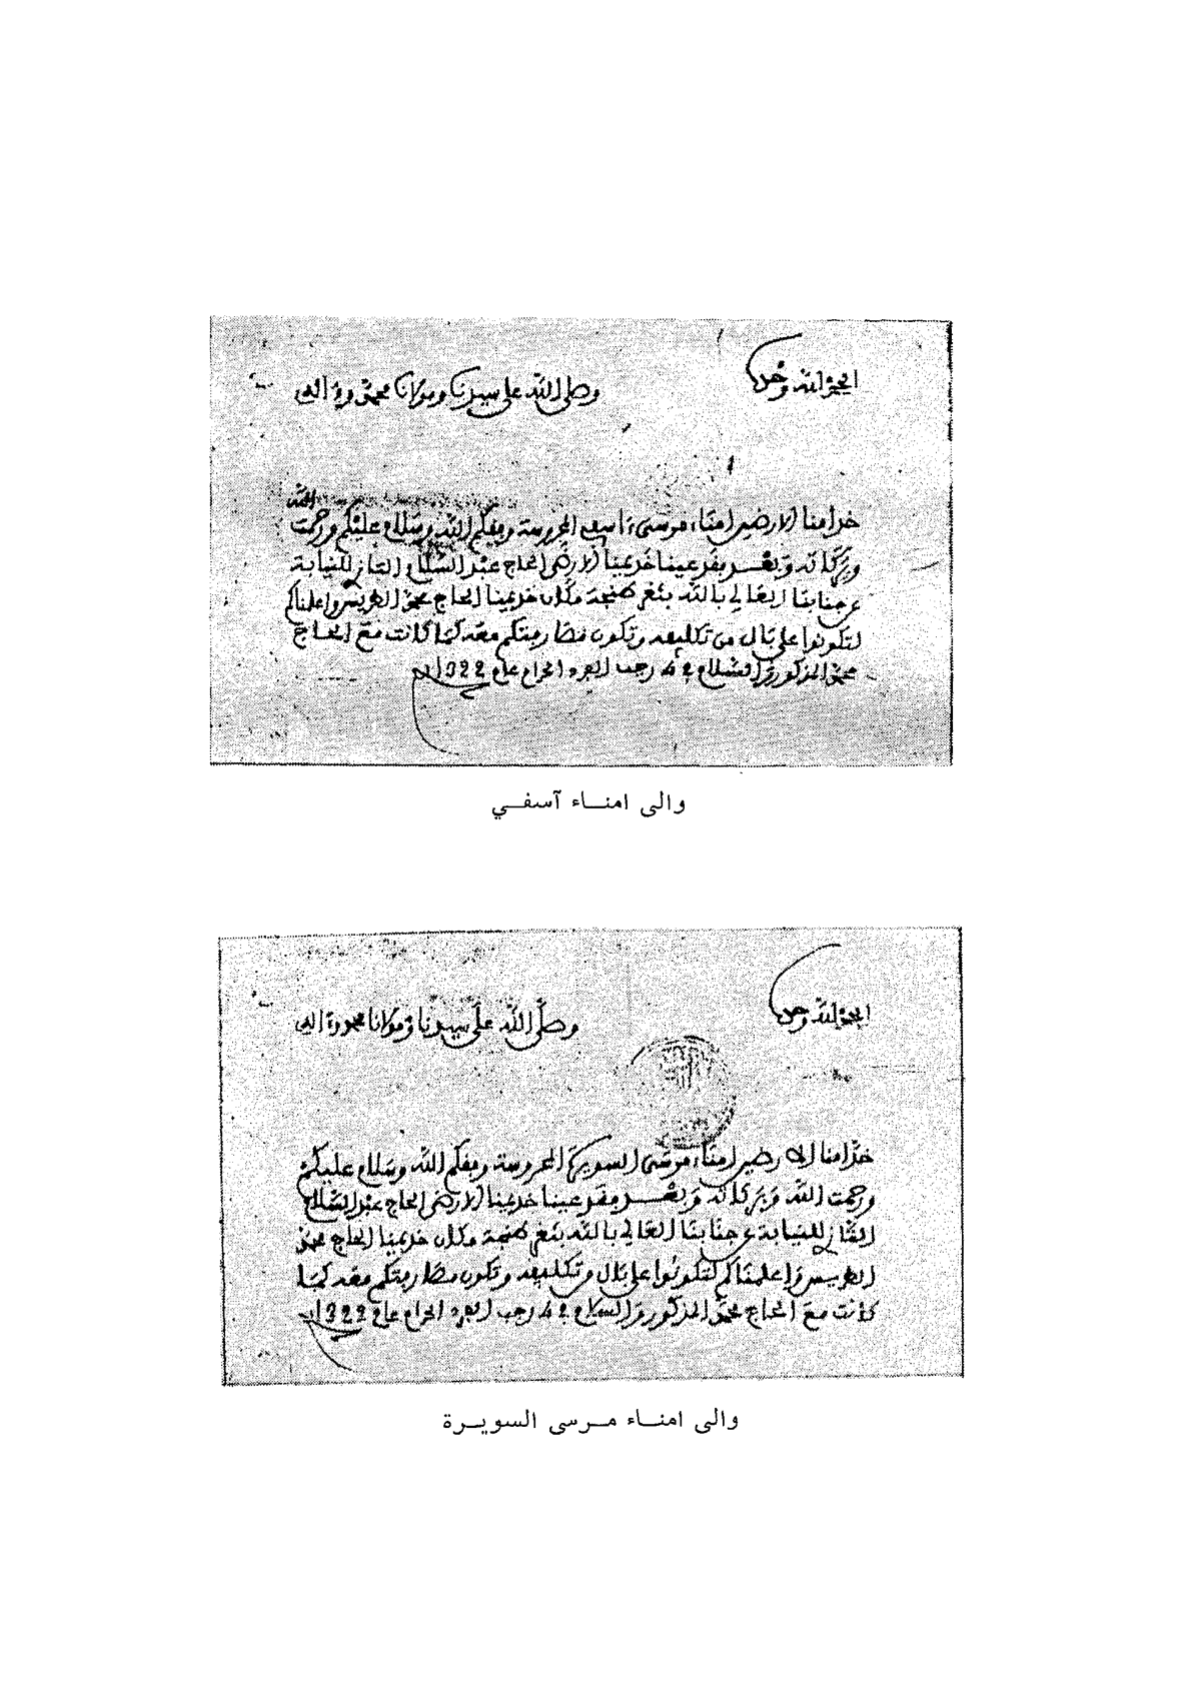 الحمد لله وحده
وصلى الله على سيدنا ومولانا محمد وءاله
خدامنا الارضين امناء مرسى ءاسفي المحروسة وفقكم الله وسلام عليكم ورحمت الله
وبركاته وبعد فقد عينا خديمنا الارضى الحاج عبد السلام التازي للنيابة
عن جنابنا العالي بالله بثغر طنجة مكان خديمنا الحاج محمد الطريس واعلمناكم
لتكونوا على بال من تكليفه وتكون مفاوضتكم معه كما كانت مع الحاج
محمد المذكور والسلام في 4 رجب الفرد الحرام عام 1322
والى امنـــاء آسفـــي
الحمد لله وحده
وصلى الله على سيدنا ومولانا محمد وءاله
خدامنا الارضين امناء مرسى السويرة المحروسة وفقكم الله وسلام عليكم
ورحمت الله وبركاته وبعد فقد عينا خديمنا الارضى الحاج عبد السلام
التازي للنيابة عن جنابنا العالي بالله بثغر طنجة مكان خديمنا الحاج محمد
الطريس واعلمناكم لتكونوا على بال من تكليفه وتكون مفاوضتكم معه كما
كانت مع الحاج محمد المذكور والسلام في 4 رجب الفرد الحرام عام 1322
والى امنـــاء مـرسى السويـرة